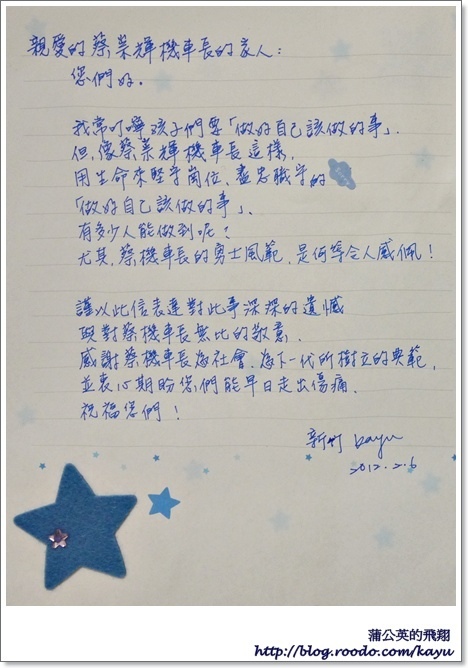 親愛的蔡榮輝機車長的家人：
您們好。
我常叮嚀孩子們要「做好自己該做的事」.
但，像蔡榮輝機車長這樣，
用生命來堅守崗位、盡忠職守的
「做好自己該做的事」、
有多少人能做到呢？
尤其，蔡機車長的勇士風範，是何等令人感佩！
謹以此信表達對此事深深的遺憾
與對蔡機車長無比的敬意.
感謝蔡機車長為社會、為下一代所樹立的典範，
並衷心期盼您們能早日走出傷痛.
祝福您們！
新竹 kayu
2012.2.6
蒲公英的飛翔
http://blog.roodo.com/kayu